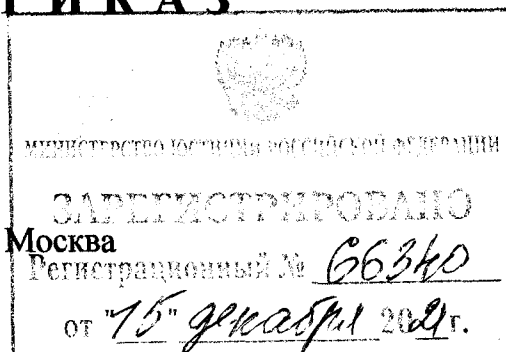 ПРИКАЗ
МИНИСТЕРСТВО ЮСТИЦИИ РОССИЙСКОЙ ФЕДЕРАЦИИ
ЗАРЕГИСТРИРОВАНО
Москва
Регистрационный № 66340
от "15" декабря 2021г.